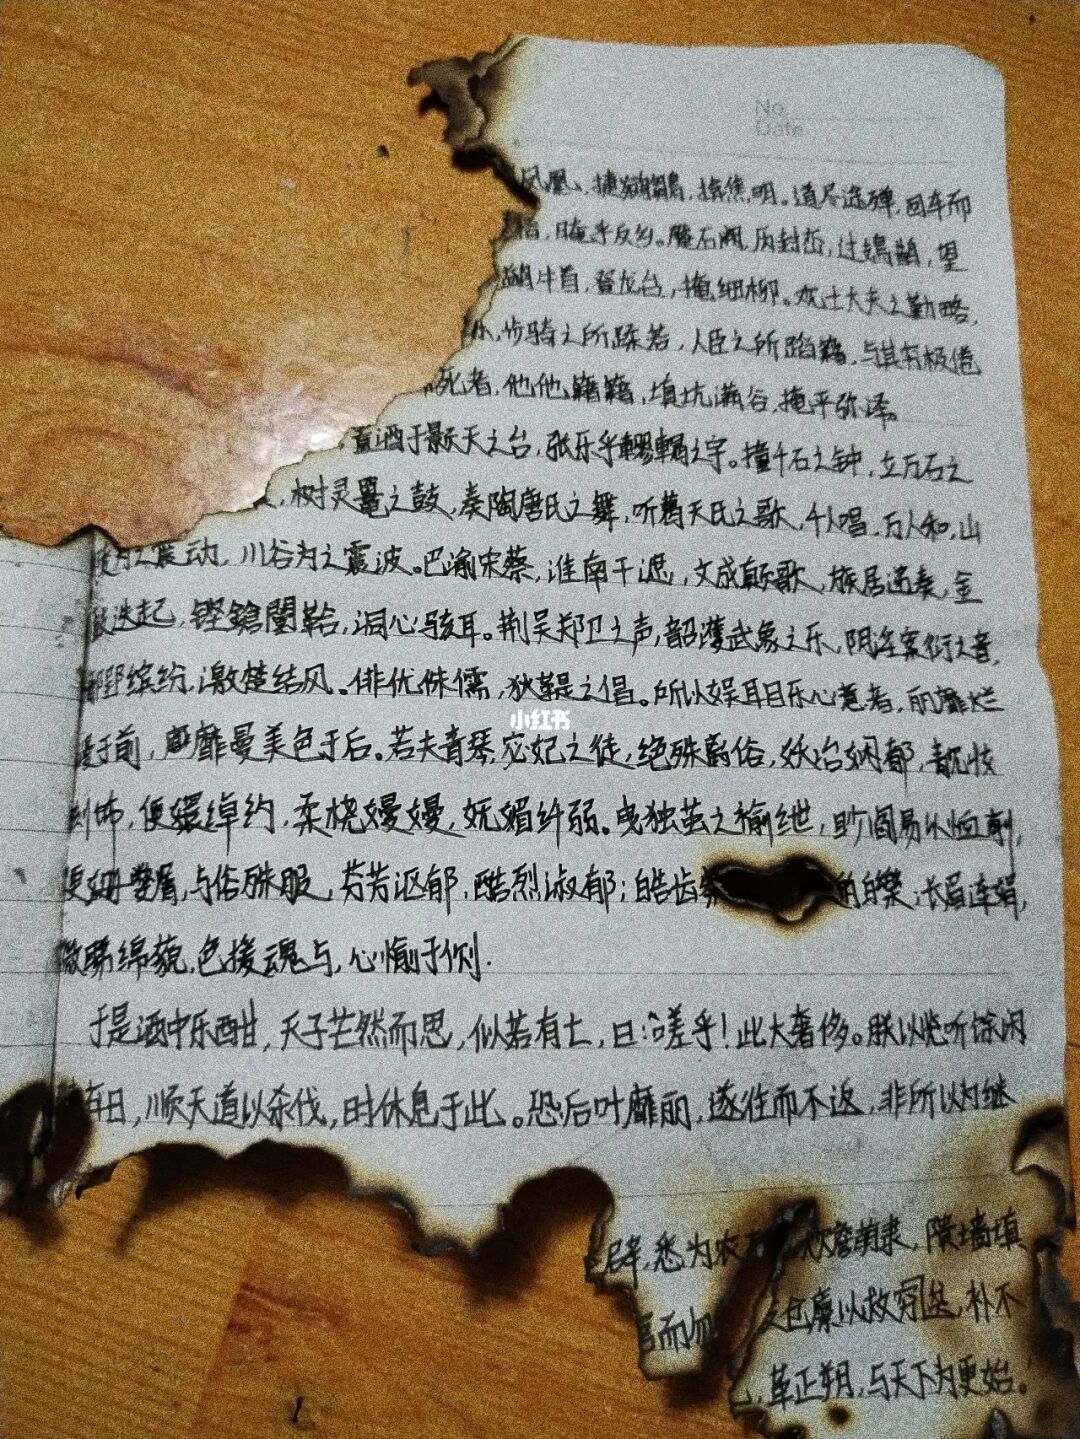 No.
Date
凤凰，捷鹓鶵，揜焦明。道尽途殚，回车而
，晻乎反乡。蹷石阙，历封峦，过鳷鹊，望
牛首，登龙台，掩细柳。观士大夫之勤略，
步骑之所蹂若，人臣之所蹈籍，与其穷极倦
死者，他他籍籍，填坑满谷，掩平弥泽。
置酒于颢天之台，张乐乎轇輵之宇。撞千石之钟，立万石之
，树灵鼍之鼓，奏陶唐氏之舞，听葛天氏之歌，千人唱，万人和，山
为之震动，川谷为之震波。巴渝宋蔡，淮南干遮，文成颠歌，族居递奏，金
迭起，铿鎗闛鞈，洞心骇耳。荆吴郑卫之声，韶濩武象之乐，阴淫案衍之音，
缤纷，激楚结风。俳优侏儒，狄鞮之倡。所以娱耳目乐心意者，丽靡烂
于前，靡曼美色于后。若夫青琴，宓妃之徒，绝殊离俗，妖冶娴都，靓妆
刻饰，便嬛绰约，柔桡嫚嫚，妩媚纤弱。曳独茧之褕绁，眇阎易以恤削，
便姗嫳屑，与俗殊服，芬芳沤郁，酷烈淑郁；皓齿 的皪，长眉连娟，
微睇绵藐，色授魂与，心愉于侧.
于是酒中乐酣，天子芒然而思，似若有亡，曰：“嗟乎！此大奢侈。朕以览听馀闲
弃日，顺天道以杀伐，时休息于此。恐后叶靡丽，遂往而不返，非所以为继
辟，悉为农 赡萌隶，隤墙填
而勿 仓廪以救穷 ，补不
，革正朔，与天下为更始。
小红书